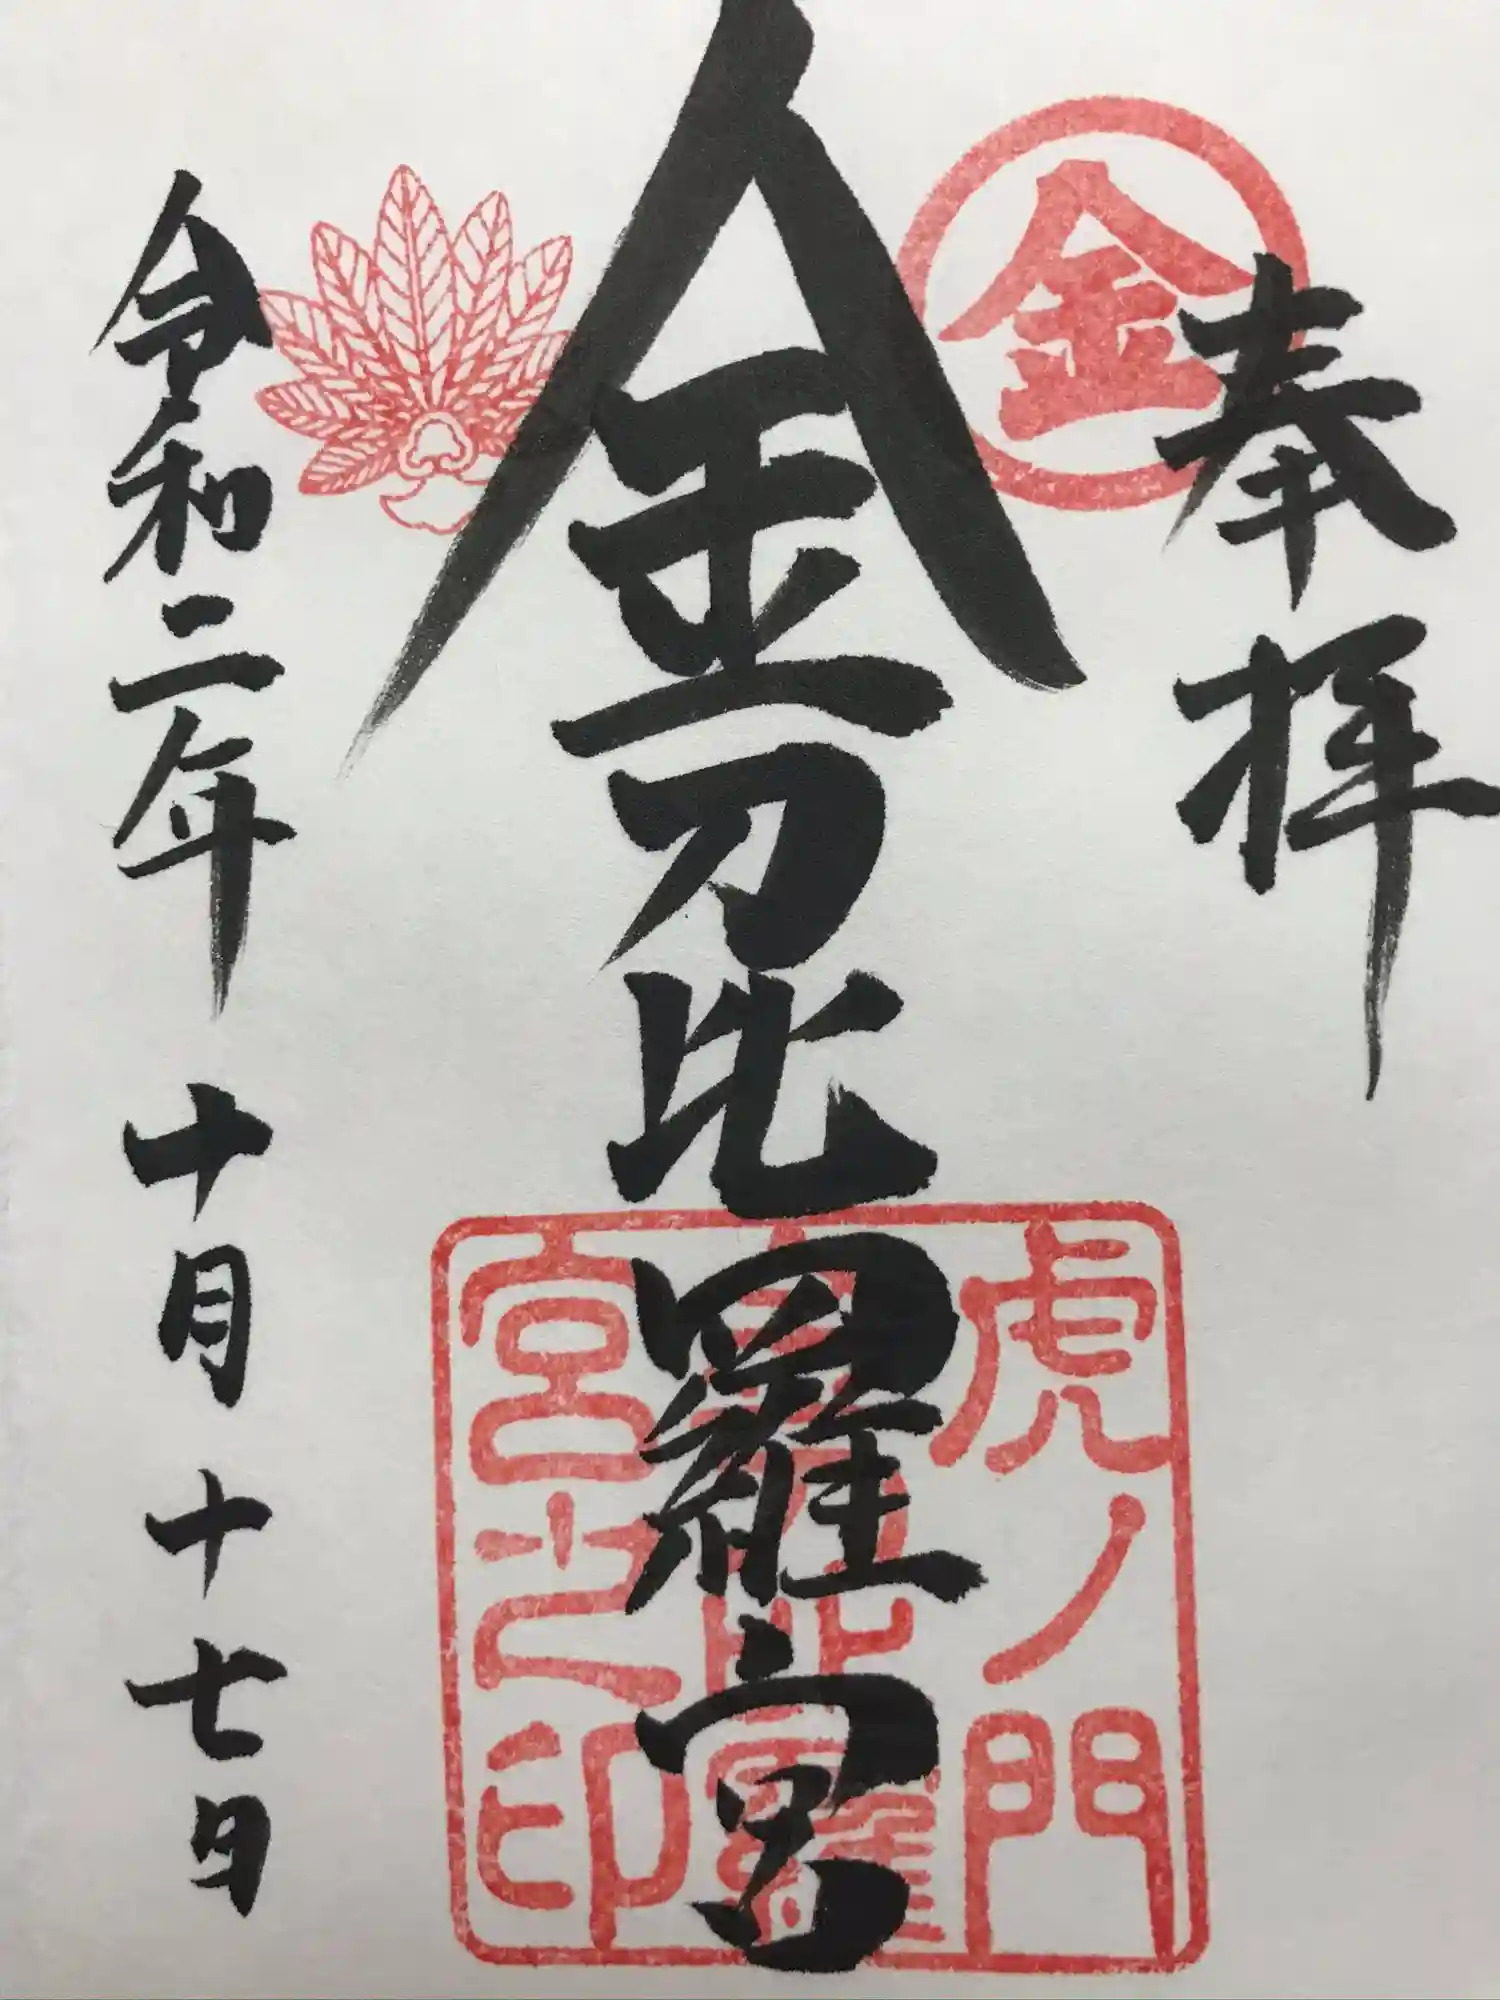 奉拝
金
金刀比羅宮
虎ノ門
金刀比羅
宮之印
令和二年十月十七日